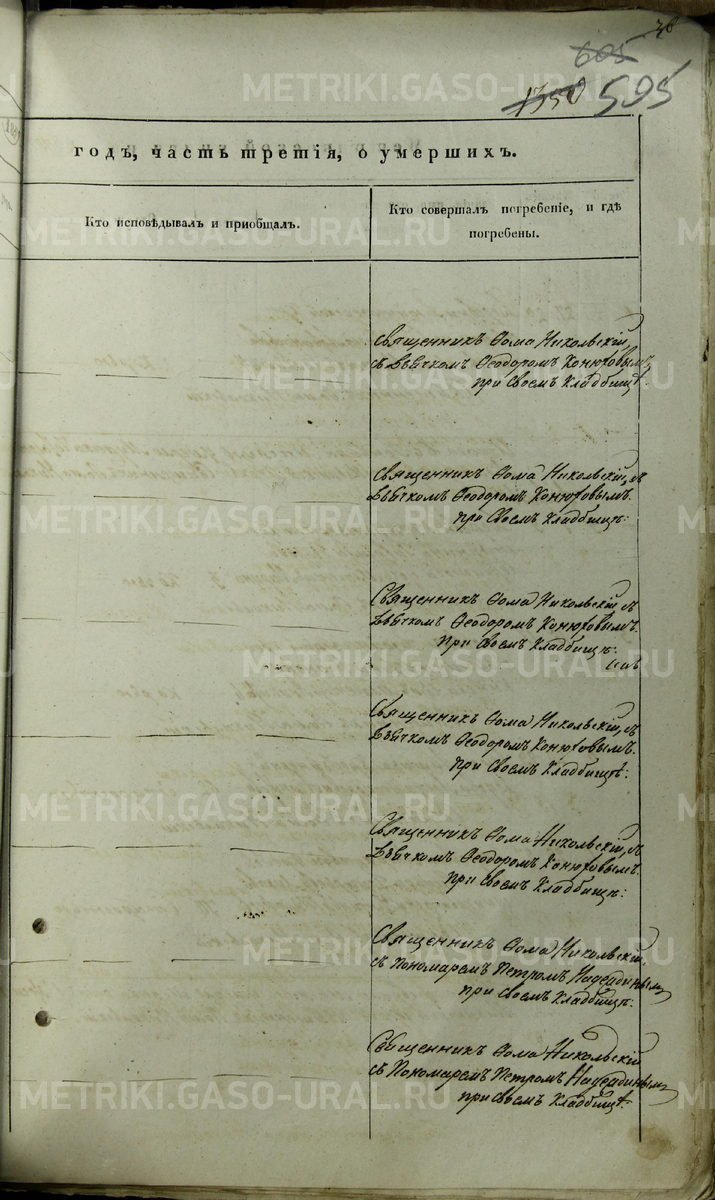 38
605
1350 595
годъ, часть третія, о умершихъ.
Кто исповѣдывалъ и пріобщалъ.
Кто совершалъ погребеніе, и гдѣ
погребены.
Священникъ Ѳома Никольскій,
съ дьячкомъ Ѳеодоромъ Конюховымъ,
при своемъ кладбищѣ.
Священникъ Ѳома Никольскій, съ
дьячкомъ Ѳеодоромъ Конюховымъ.
при своемъ кладбищѣ.
Священникъ Ѳома Никольскій съ
дьячкомъ Ѳеодоромъ Конюховымъ.
при своемъ кладбищѣ.
Священникъ Ѳома Никольскій, съ
дьячкомъ Ѳеодоромъ Конюховымъ.
при своемъ кладбищѣ:
Священникъ Ѳома Никольскій, съ
дьячкомъ Ѳеодоромъ Конюховымъ.
при своемъ кладбищѣ:
Священникъ Ѳома Никольскій,
съ пономаремъ Петромъ Надеждинымъ
при своемъ кладбищѣ.
Священникъ Ѳома Никольскій
съ пономаремъ Петромъ Надеждинымъ
при своемъ кладбищѣ.
METRIKI.GASO-URAL.RU